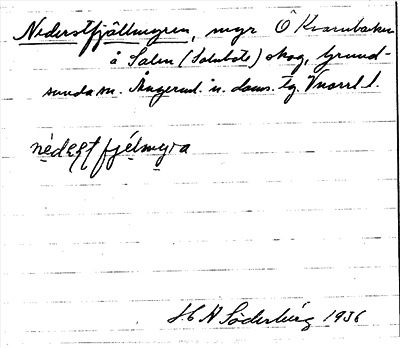 Nederstfjällmyren, myr Ö Kvarnbacken
å Salen (Salubole) skog, Grund-
sunda sn. Ångerml. n. doms. tg. Vnorrl. l.
nedeʂʈfjélmyra
H A Söderberg 1936